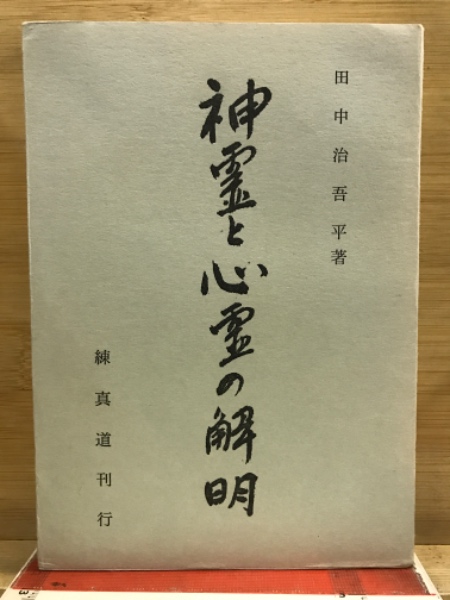 田中治吾平著
神霊と心霊の解明
練真道刊行